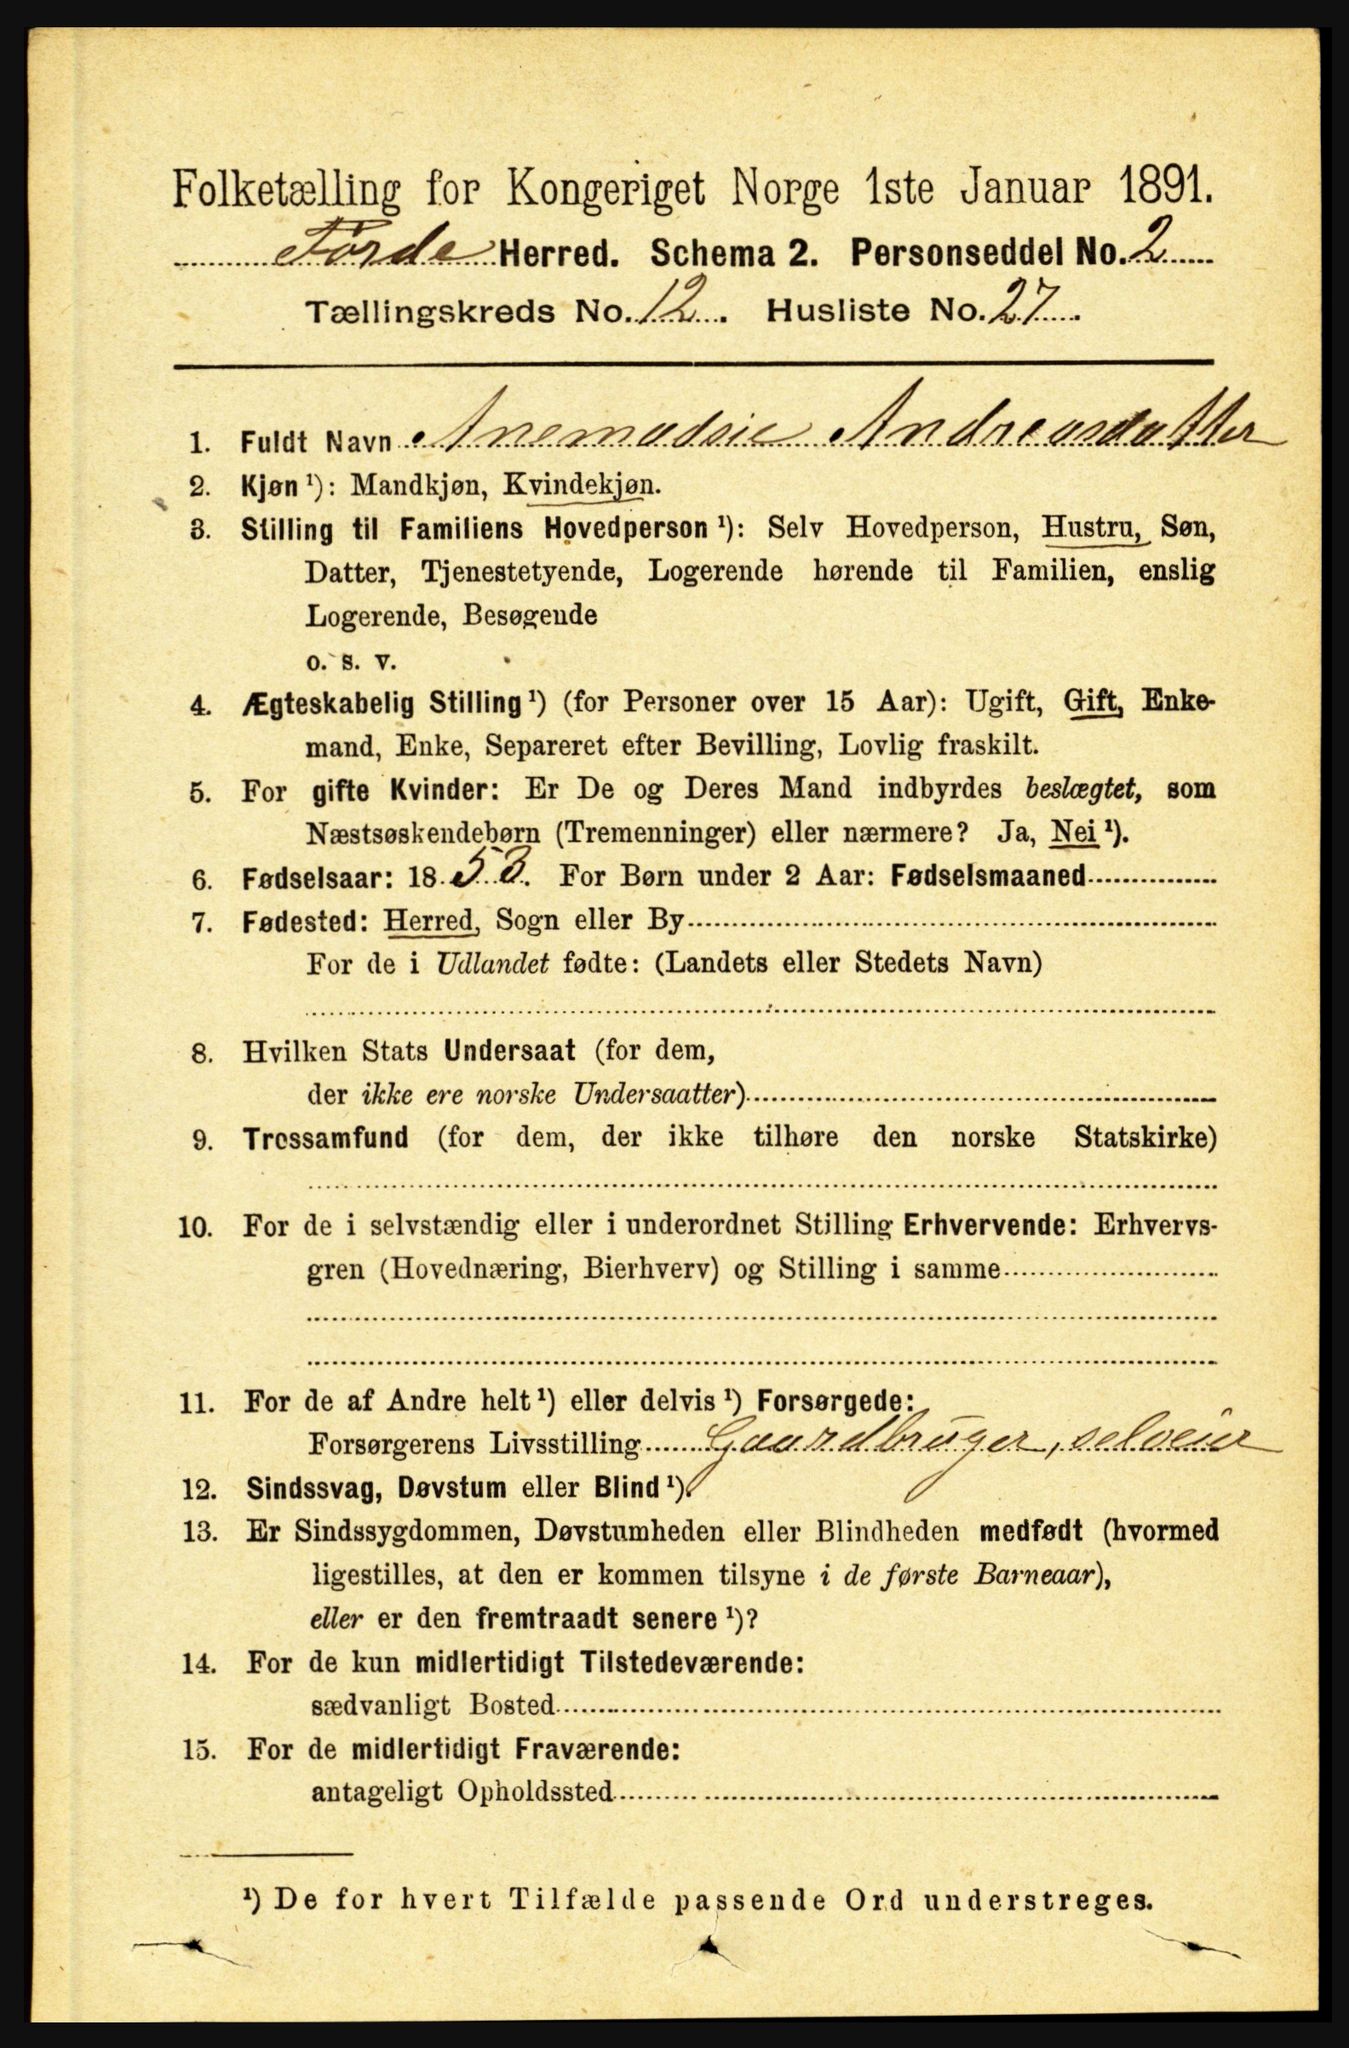 Folketælling for Kongeriget Norge 1ste Januar 1891.
Førde Herred. Schema 2. Personseddel No. 2
Tællingskreds No. 12. Husliste No. 27.
1. Fuldt Navn Anemadsie Andreasdatter
2. Kjøn ¹): Mandkjøn, Kvindekjøn.
3. Stilling til Familiens Hovedperson ¹): Selv Hovedperson, Hustru, Søn,
Datter, Tjenestetyende, Logerende hørende til Familien, enslig
Logerende, Besøgende
o. s. v.
4. Ægteskabelig Stilling ¹) (for Personer over 15 Aar): Ugift, Gift, Enke-
mand, Enke, Separeret efter Bevilling, Lovlig fraskilt.
5. For gifte Kvinder: Er De og Deres Mand indbyrdes beslægtet, som
Næstsøskendebørn (Tremenninger) eller nærmere? Ja, Nei ¹).
6. Fødselsaar: 1853. For Børn under 2 Aar: Fødselsmaaned
7. Fødested: Herred, Sogn eller By
For de i Udlandet fødte: (Landets eller Stedets Navn)
8. Hvilken Stats Undersaat (for dem,
der ikke ere norske Undersaatter)
9. Trossamfund (for dem, der ikke tilhøre den norske Statskirke)
10. For de i selvstændig eller i underordnet Stilling Erhvervende: Erhvervs-
gren (Hovednæring, Bierhverv) og Stilling i samme
11. For de af Andre helt ¹) eller delvis ¹) Forsørgede:
Forsørgerens Livsstilling Gaardbruger, selveier
12. Sindssvag, Døvstum eller Blind ¹).
13. Er Sindssygdommen, Døvstumheden eller Blindheden medfødt (hvormed
ligestilles, at den er kommen tilsyne i de første Barneaar),
eller er den fremtraadt senere ¹)?
14. For de kun midlertidigt Tilstedeværende:
sædvanligt Bosted
15. For de midlertidigt Fraværende:
antageligt Opholdssted
¹) De for hvert Tilfælde passende Ord understreges.